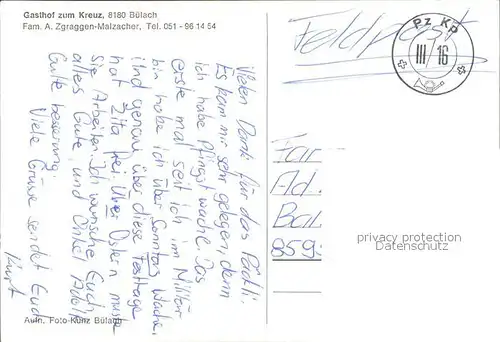 Gasthof zum Kreuz, 8180 Bülach
Fam. A. Zgraggen-Malzacher, Tel. 051 - 96 14 54
Vielen Dank für das Päckli.
Es kam mir sehr gelegen, denn
ich habe Pfingstwache. Das
erste mal seit ich im Militär
bin habe ich über Sonntags Wache,
und genau über diese Festtage
hat Zita frei. Über Ostern musste
Sie Arbeiten. Ich wünsche Euch
alles Gute und Onkel Adolf
Gute besserung.
Viele Grüsse sendet Euch
Kurt
Aufn. Foto-Kunz Bülach
Feldpost
Pz Kp
III/16
Fam
Ad.
859
privacy protection
Datenschutz